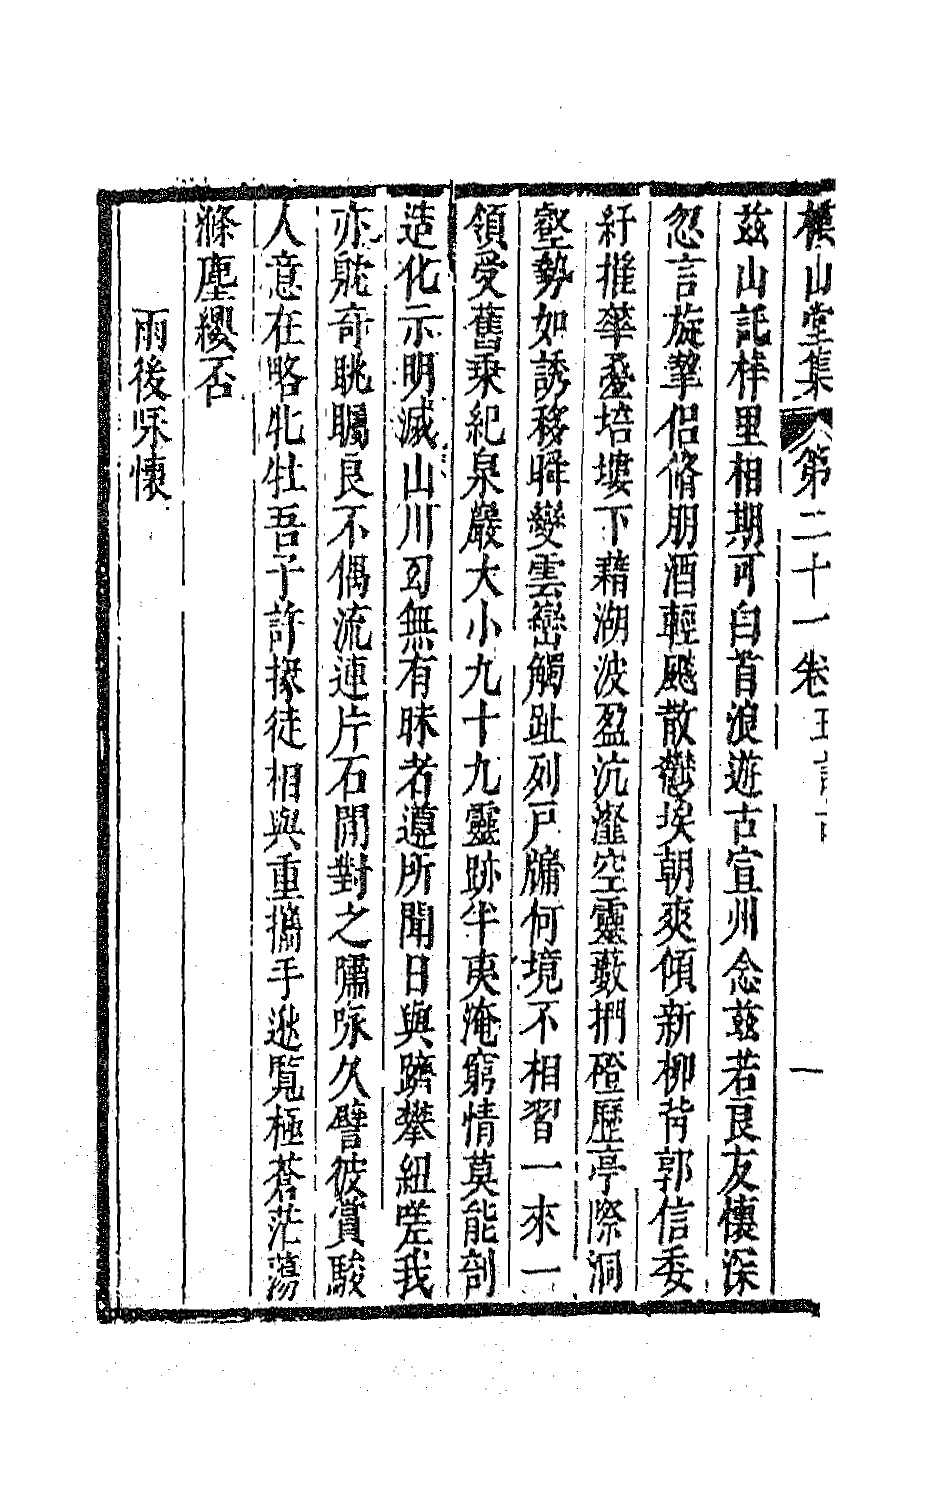 樸山堂集 第二十一卷 五言古 一
茲山託梓里相期可白首浪遊古宣州念茲若良友懷深
忽言旋挈侶脩朋酒輕颸散鬱埃朝爽傾新柳背郭信委
紆推篳壘培塿下藉湖波盈沆瀣空靈藪捫磴歷亭際洞
壑勢如誘移瞬變雲巒觸趾列戸牖何境不相習一來一
領受舊乘紀泉巖大小九十九靈跡半夷淹窮情莫能剖
造化示明滅山川刃無有昧者遵所聞日與躋攀紐嗟我
亦躭奇眺矚良不偶流連片石閒對之嘯咏久譬彼賞駿
人意在略牝牡吾子許掾徒相與重攜手逖覽極蒼茫蕩
滌塵纓否
雨後呆懷